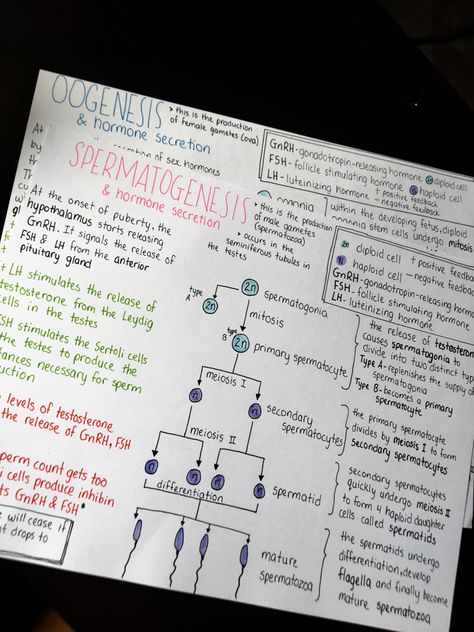 OOGENESIS
& hormone secretion
> this is the production
of female gametes (ova)
GnRH-gonadotropin-releasing hormone
FSH- follicle stimulating hormone
LH- luteinizing hormone
2n diploid cell
n haploid cell
+ positive feedback
- negative feedback
At
by
of sex hormones
oogonia
within the developing fetus, diploid
stem cells undergo mitosis
SPERMATOGENESIS
& hormone secretion
> this is the production
of male gametes
(spermatozoa)
> occurs in the
seminiferous tubules in
the testes
2n diploid cell
n haploid cell
+ positive feedback
- negative feedback
GnRH-gonadotropin-releasing hormo
FSH- follicle stimulating hormone
LH- luteinizing hormone
At the onset of puberty, the
hypothalamus starts releasing
GnRH. It signals the release of
FSH & LH from the anterior
pituitary gland
+ LH stimulates the release of
testosterone from the Leydig
cells in the testes
FSH stimulates the Sertoli cells
the testes to produce the
ances necessary for sperm
uction
levels of testosterone
the release of GnRH, FSH
perm count gets too
i cells produce inhibin
ts GnRH & FSH*
will cease if
t drops to
type A
2n
2n
spermatogonia
mitosis
type B
2n
primary spermatocyte
meiosis I
n
n
secondary
spermatocytes
meiosis II
n
n
n
n
spermatid
differentiation
mature
spermatozoa
the release of testoster
causes spermatogonia to
divide into two distinct typ
Type A- replenishes the supply of
spermatogonia
Type B-becomes a primary
spermatocyte
the primary spermatocyte
divides by meiosis I to form
secondary spermatocytes
secondary spermatocytes
quickly undergo meiosis II
to form 4 haploid daughter
cells called spermatids
the spermatids undergo
differentiation, develop
flagella and finally become
mature spermatozoa